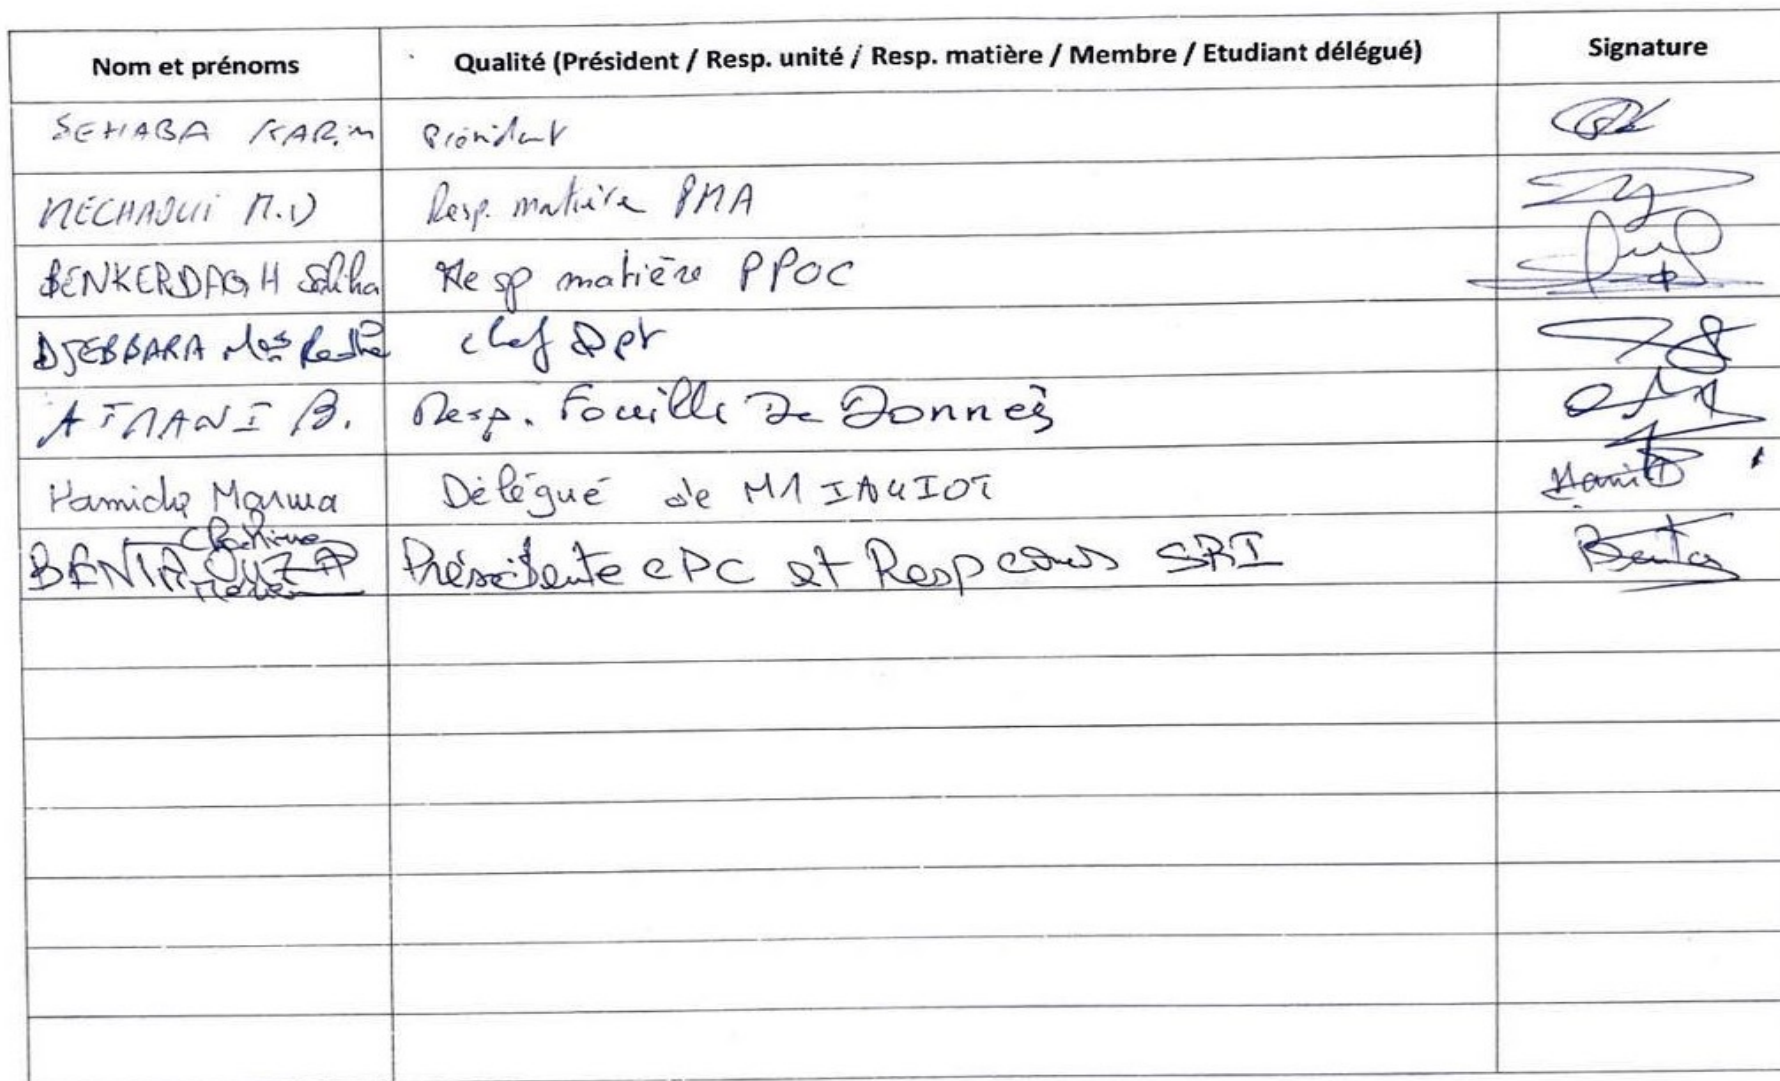 Nom et prénoms Qualité (Président / Resp. unité / Resp. matière / Membre / Etudiant délégué) Signature
SEHABA KARIM Président
MECHAOUI M.D Resp. matière PMA
BENKERDAGH Saliha Resp matière PPOC
DJEBBARA Med Redha chef Dpt
ATMANI B. Resp. Fouille De Donneés
Hamida Marwa Délégué de M1 IA4IOT
BENTAOUZA Présidente CPC et Resp cours SRI